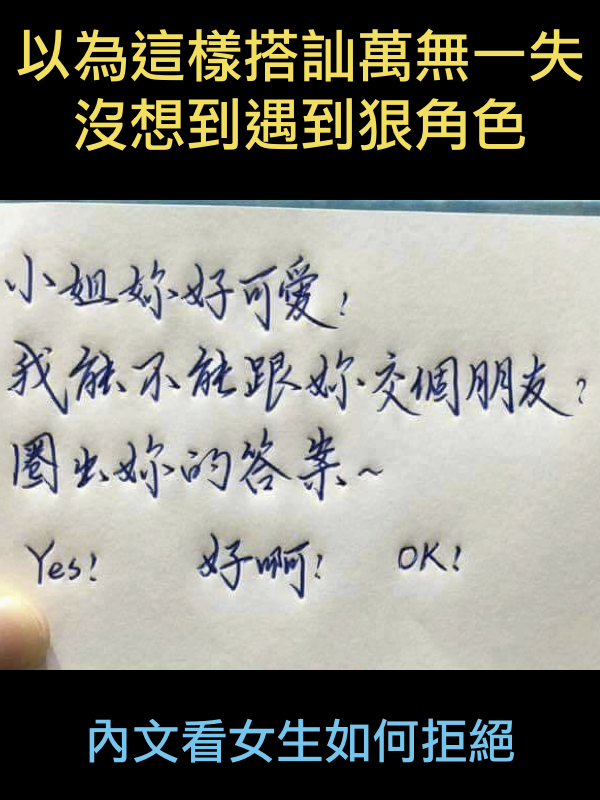 以為這樣搭訕萬無一失
沒想到遇到狠角色
小姐妳好可愛!
我能不能跟妳交個朋友?
圈出妳的答案~
Yes! 好啊! OK!
內文看女生如何拒絕